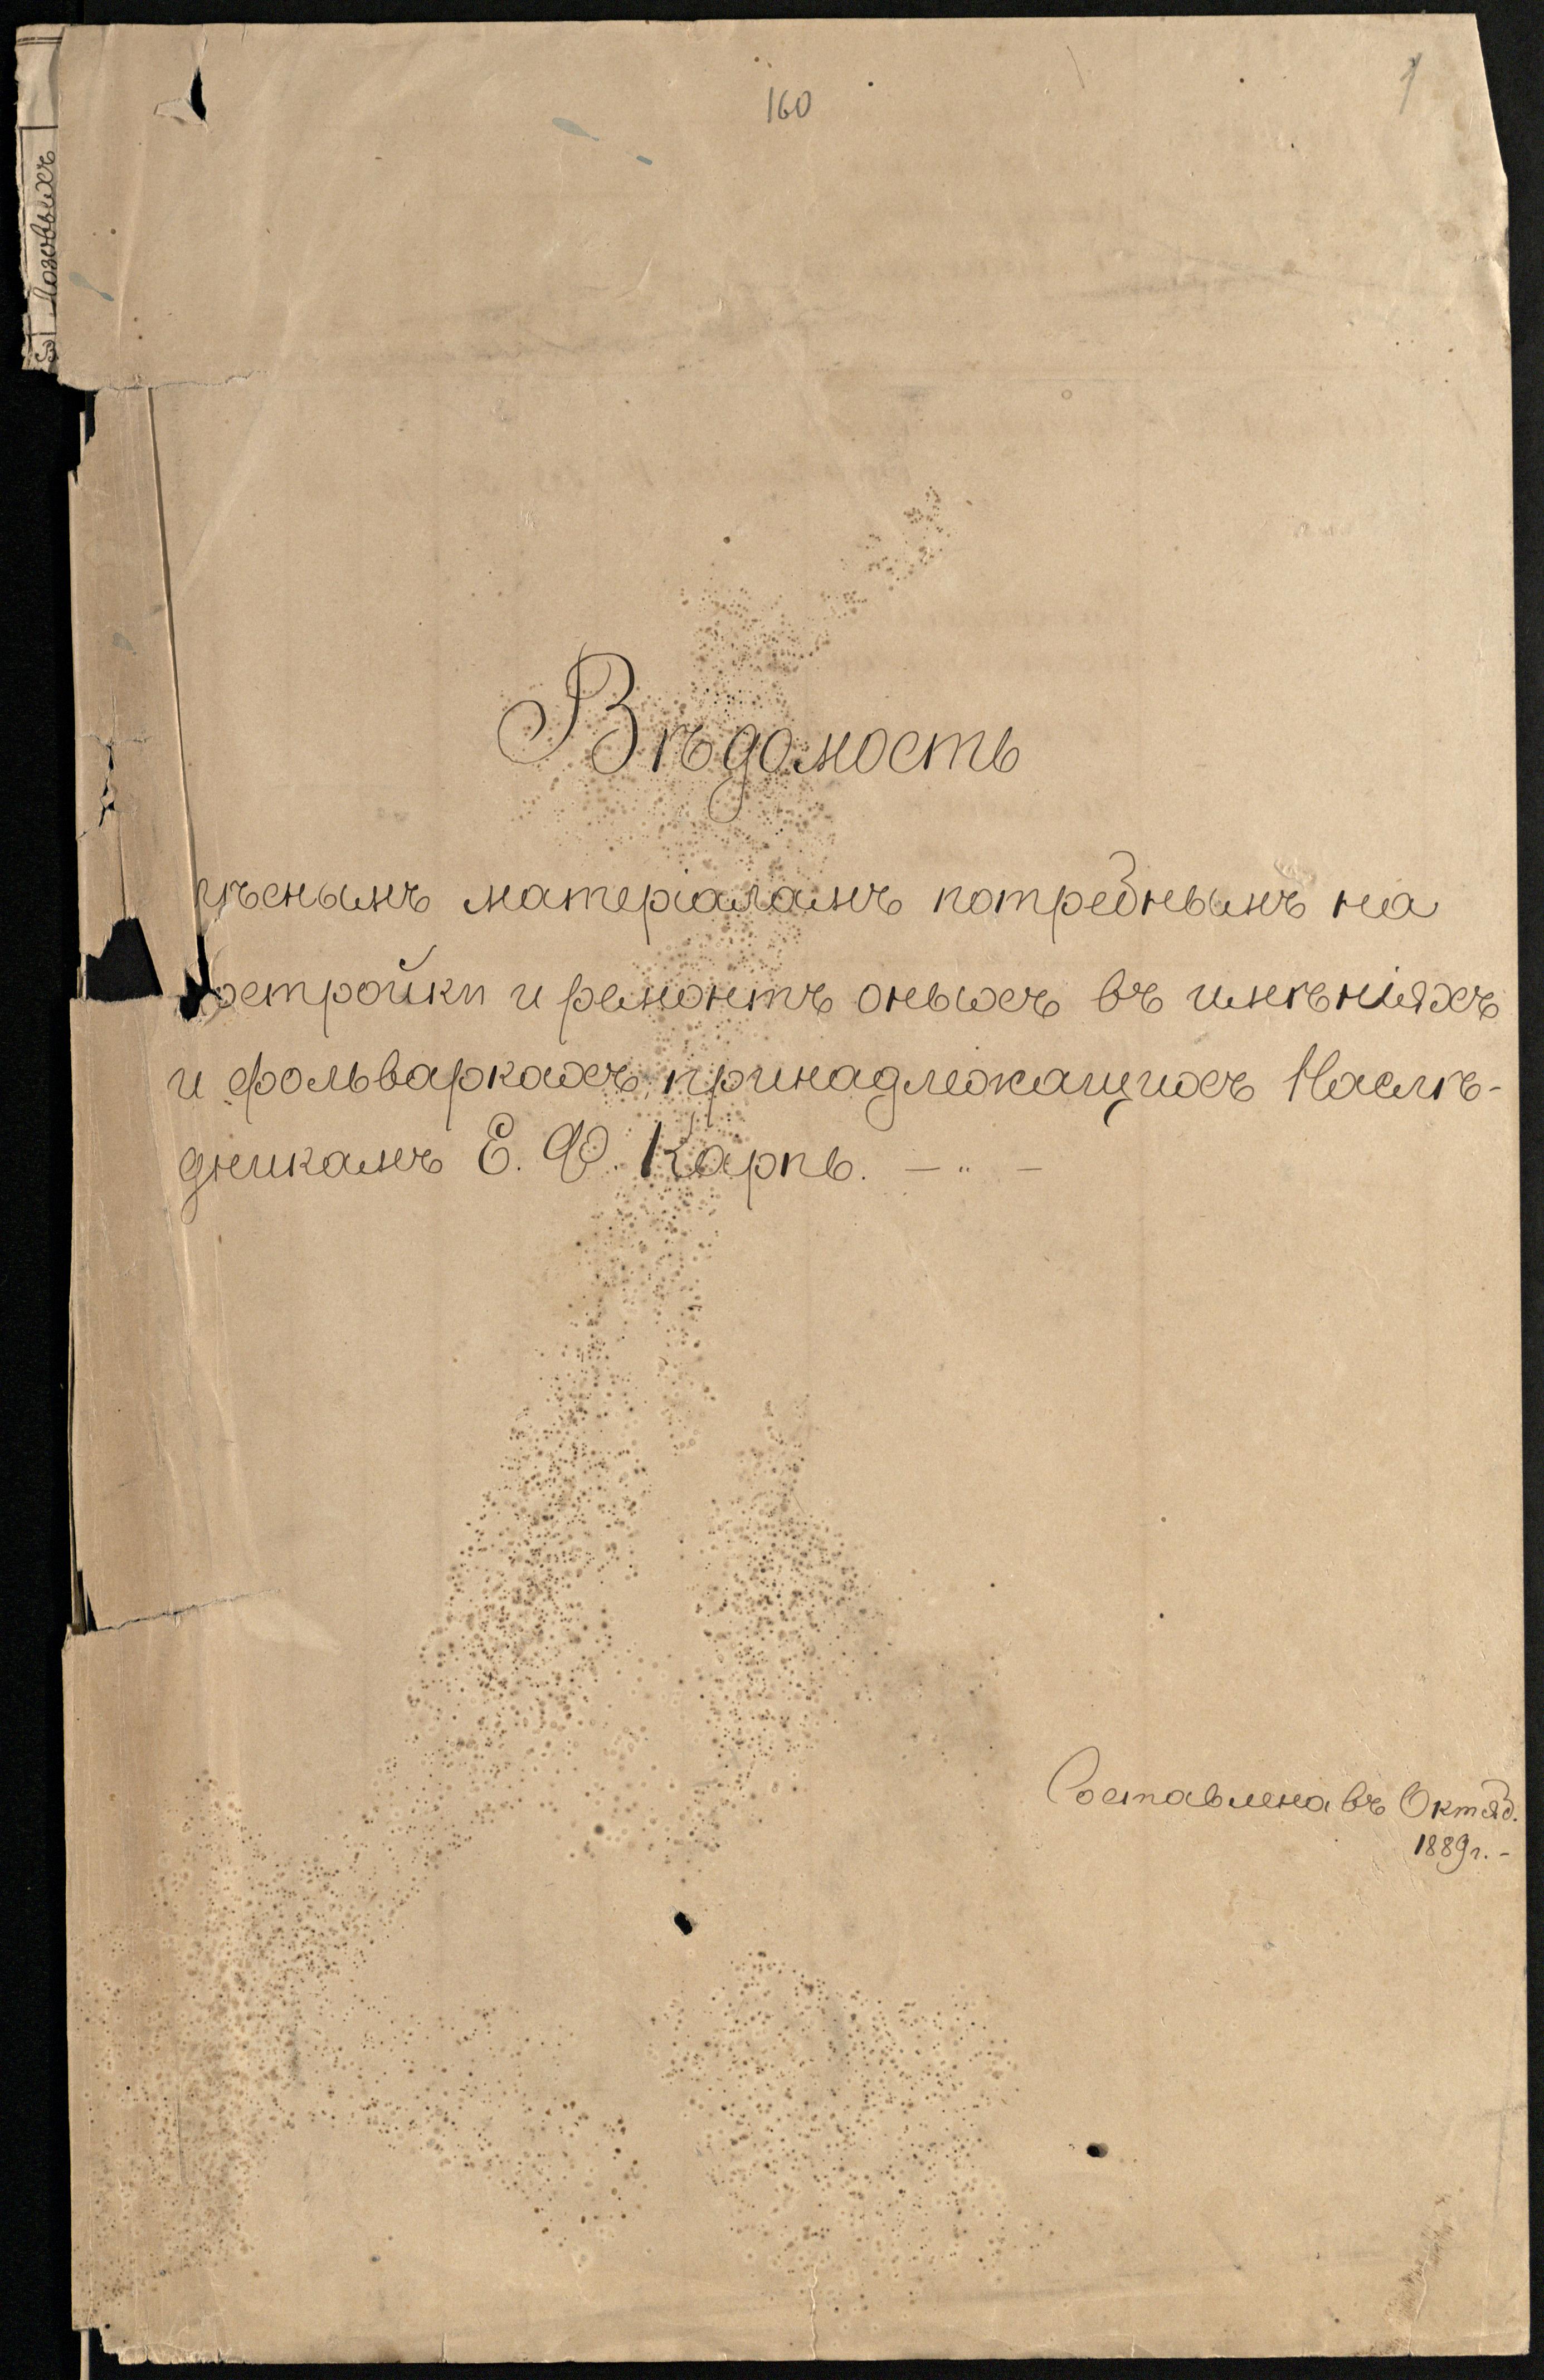 160
1
Лозовыхъ
Вѣдомость
лѣснымъ матеріаламъ потребнымъ на
постройки и ремонтъ оныхъ въ имѣніяхъ
и фольваркахъ, принадлежащихъ Наслѣ-
дникамъ Е. Ф. Карпь. — „ —
Составлена въ Октяб.
1889 г. -